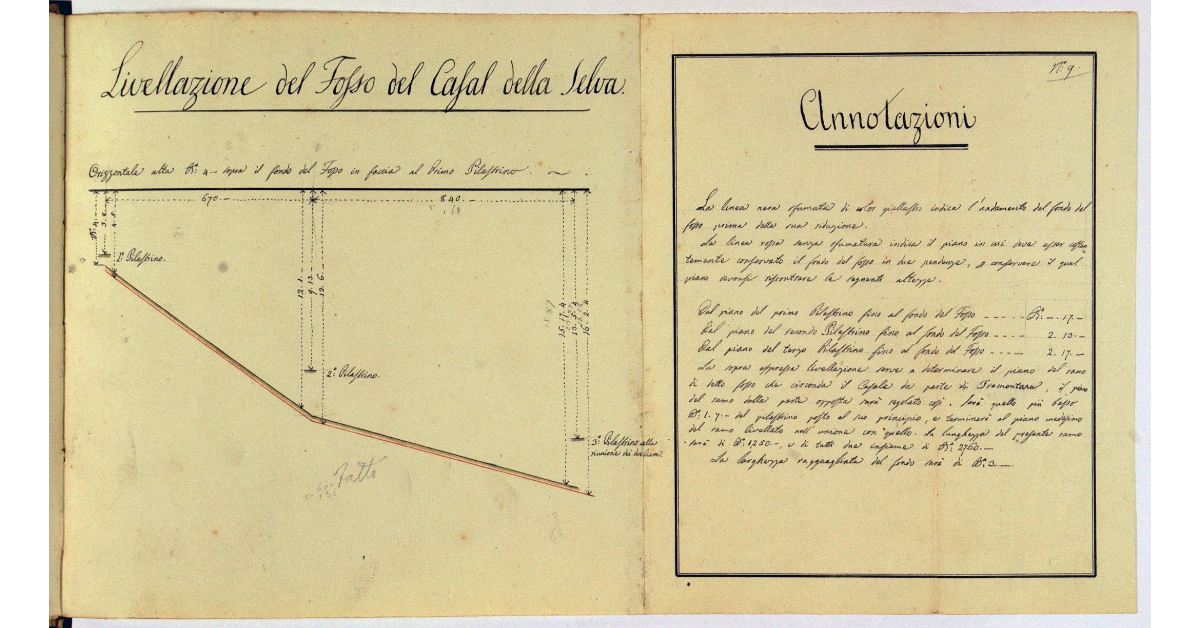 Livellazione del Fosso del Casal della Selva.
Orizzontale alta Br. 4.- sopra il fondo del Fosso in faccia al Primo Pilastrino.
670.-
840.-
1°. Pilastrino.
12. 1.
9. 13.
12. 6.
2°. Pilastrino.
15. 17. 4
16. 2. 4
3°. Pilastrino alla
riunione dei due Rami.
Fatto
N°. 9.
Annotazioni
La linea nera sfumata di color giallastro indica l'andamento del fondo del
fosso prima della sua riduzione.
La linea rossa senza sfumatura indica il piano in cui deve esser costan
temente conservato il fondo del fosso in due pendenze, a conservare il qual
piano dovrassi riscontrare le seguenti altezze.
Dal piano del primo Pilastrino fino al fondo del Fosso ----- Br. -. 17.-
Dal piano del secondo Pilastrino fino al fondo del Fosso ---- 2. 13.-
Dal piano del terzo Pilastrino fino al fondo del Fosso ---- 2. 17.-
La sopra espressa livellazione serve a determinare il piano del ramo
di detto fosso che circonda il Casale da parte di Tramontana, il piano
del ramo dalla parte opposta sarà regolato così. Sarà quello più basso
Br. 1. 7.- del pilastrino posto al suo principio, e terminerà al piano medesimo
del ramo livellato nell'unione con quello. La lunghezza del presente ramo
sarà di Br. 1250.-, e di tutti due insieme di Br. 2760.-
La larghezza ragguagliata del fondo sarà di Br. 3.-